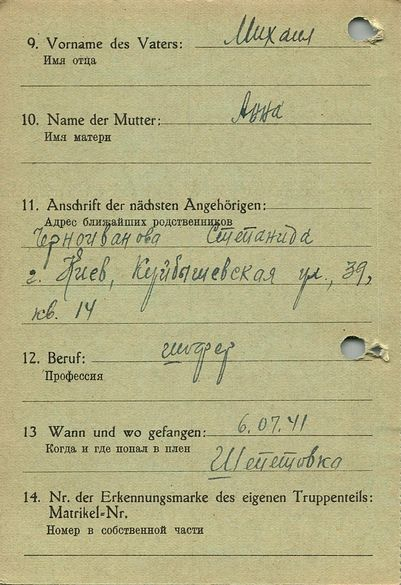 9. Vorname des Vaters: Михаил
Имя отца
10. Name der Mutter: Анна
Имя матери
11. Anschrift der nächsten Angehörigen:
Адрес ближайших родственников
Черноиванова Степанида
г. Киев, Куйбышевская ул., 39,
кв. 14
12. Beruf: шофер
Профессия
13 Wann und wo gefangen: 6.07.41
Когда и где попал в плен
Шепетовка
14. Nr. der Erkennungsmarke des eigenen Truppenteils:
Matrikel-Nr.
Номер в собственной части